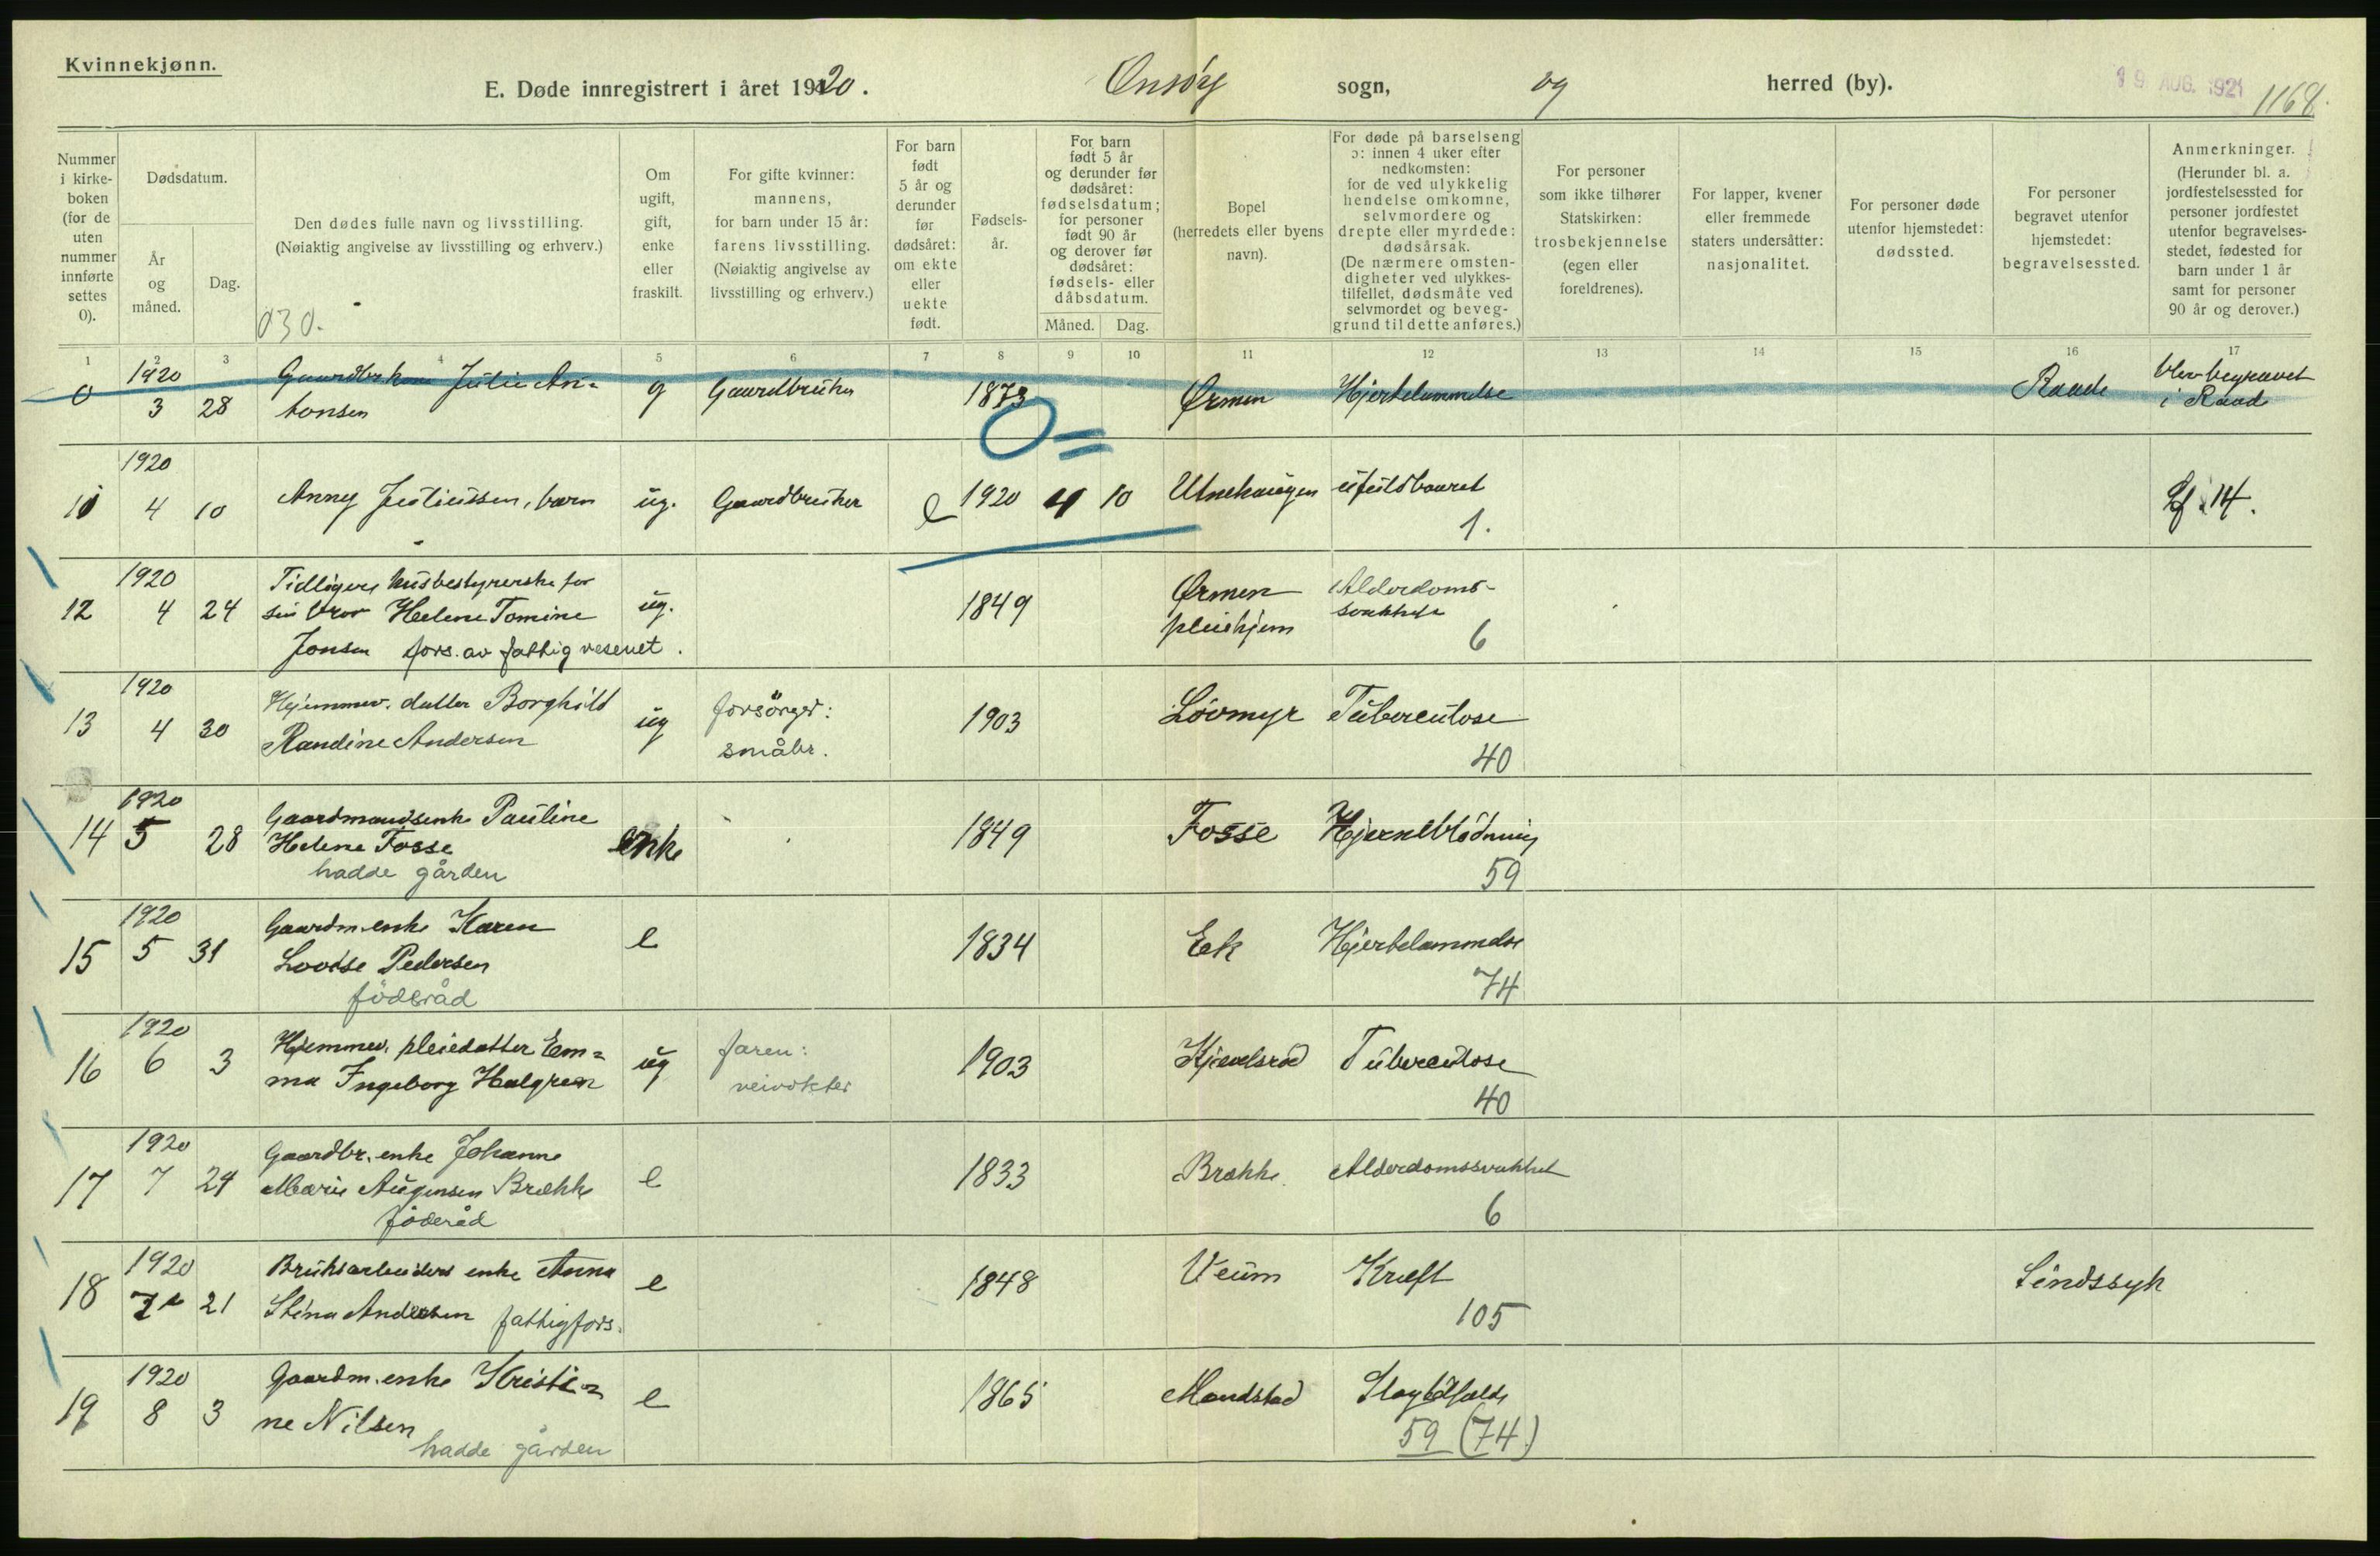 Kvinnekjønn.
E. Døde innregistrert i året 1920. Onsøy sogn, og herred (by).
19 AUG. 1921
1168.
Nummer i kirke- boken (for de uten nummer innførte settes 0).
Dødsdatum.
År og måned.
Dag.
Den dødes fulle navn og livsstilling.
(Nøiaktig angivelse av livsstilling og erhverv.)
030.
Om ugift, gift, enke eller fraskilt.
For gifte kvinner: mannens, for barn under 15 år: farens livsstilling. (Nøiaktig angivelse av livsstilling og erhverv.)
For barn født 5 år og derunder før dødsåret: om ekte eller uekte født.
Fødsels- år.
For barn født 5 år og derunder før dødsåret: fødselsdatum; for personer født 90 år og derover før dødsåret: fødsels- eller dåbsdatum.
Måned. Dag.
Bopel (herredets eller byens navn).
For døde på barselseng ɔ: innen 4 uker efter nedkomsten: for de ved ulykkelig hendelse omkomne, selvmordere og drepte eller myrdede: dødsårsak. (De nærmere omsten- digheter ved ulykkes- tilfellet, dødsmåte ved selvmordet og beveg- grund til dette anføres.)
For personer som ikke tilhører Statskirken: trosbekjennelse (egen eller foreldrenes).
For lapper, kvener eller fremmede staters undersåtter: nasjonalitet.
For personer døde utenfor hjemstedet: dødssted.
For personer begravet utenfor hjemstedet: begravelsessted.
Anmerkninger. (Herunder bl. a. jordfestelsessted for personer jordfestet utenfor begravelses- stedet, fødested for barn under 1 år samt for personer 90 år og derover.)
1 2 3 4 5 6 7 8 9 10 11 12 13 14 15 16 17
1920 Gaardbr.kone Julie An= blev begravet
0 3 28 tonsen g Gaardbruker 1873 Ørmen Hjertelammelse Raade i Raade
1920
11 4 10 Anny Juliussen, barn ug. Gaardbruker e 1920 4 10 Utnehaugen ufuldbaaret
1.
1920 Tidligere husbestyrerske for Ørmen Alderdoms-
12 4 24 sin bror Helene Tomine ug. 1849 pleiehjem svakhet
Jonsen fors. av fattigvesenet. 6
1920 Hjemmev. datter Borghild forsörger:
13 4 30 Randine Andersen ug småbr. 1903 Lövmyr Tuberculose
40
1920 Gaardmandsenke Pauline
14 5 28 Helene Fosse enke 1849 Fosse Hjerneblödning
hadde gården 59
1920 Gaardm.enke Karen
15 5 31 Lovise Pedersen e 1834 Ek Hjertelammelse
föderåd 74
1920 Hjemmev. pleiedatter Em= faren:
16 6 3 ma Ingeborg Halgren ug veivokter 1903 Kjævelsrød Tuberculose
40
1920 Gaardbr. enke Johanne
17 7 24 Marie Augensen Brække e 1833 Brække Alderdomssvakhet
föderåd 6
1920 Bruksarbeiders enke Anna
18 7 21 Stina Andersen fattigfors. e 1848 Veum Kræft Sindssyk
105
1920 Gaardm.enke Kristi=
19 8 3 ne Nilsen e 1865 Maudstad Slagtilfælde
hadde gården 59 (74)